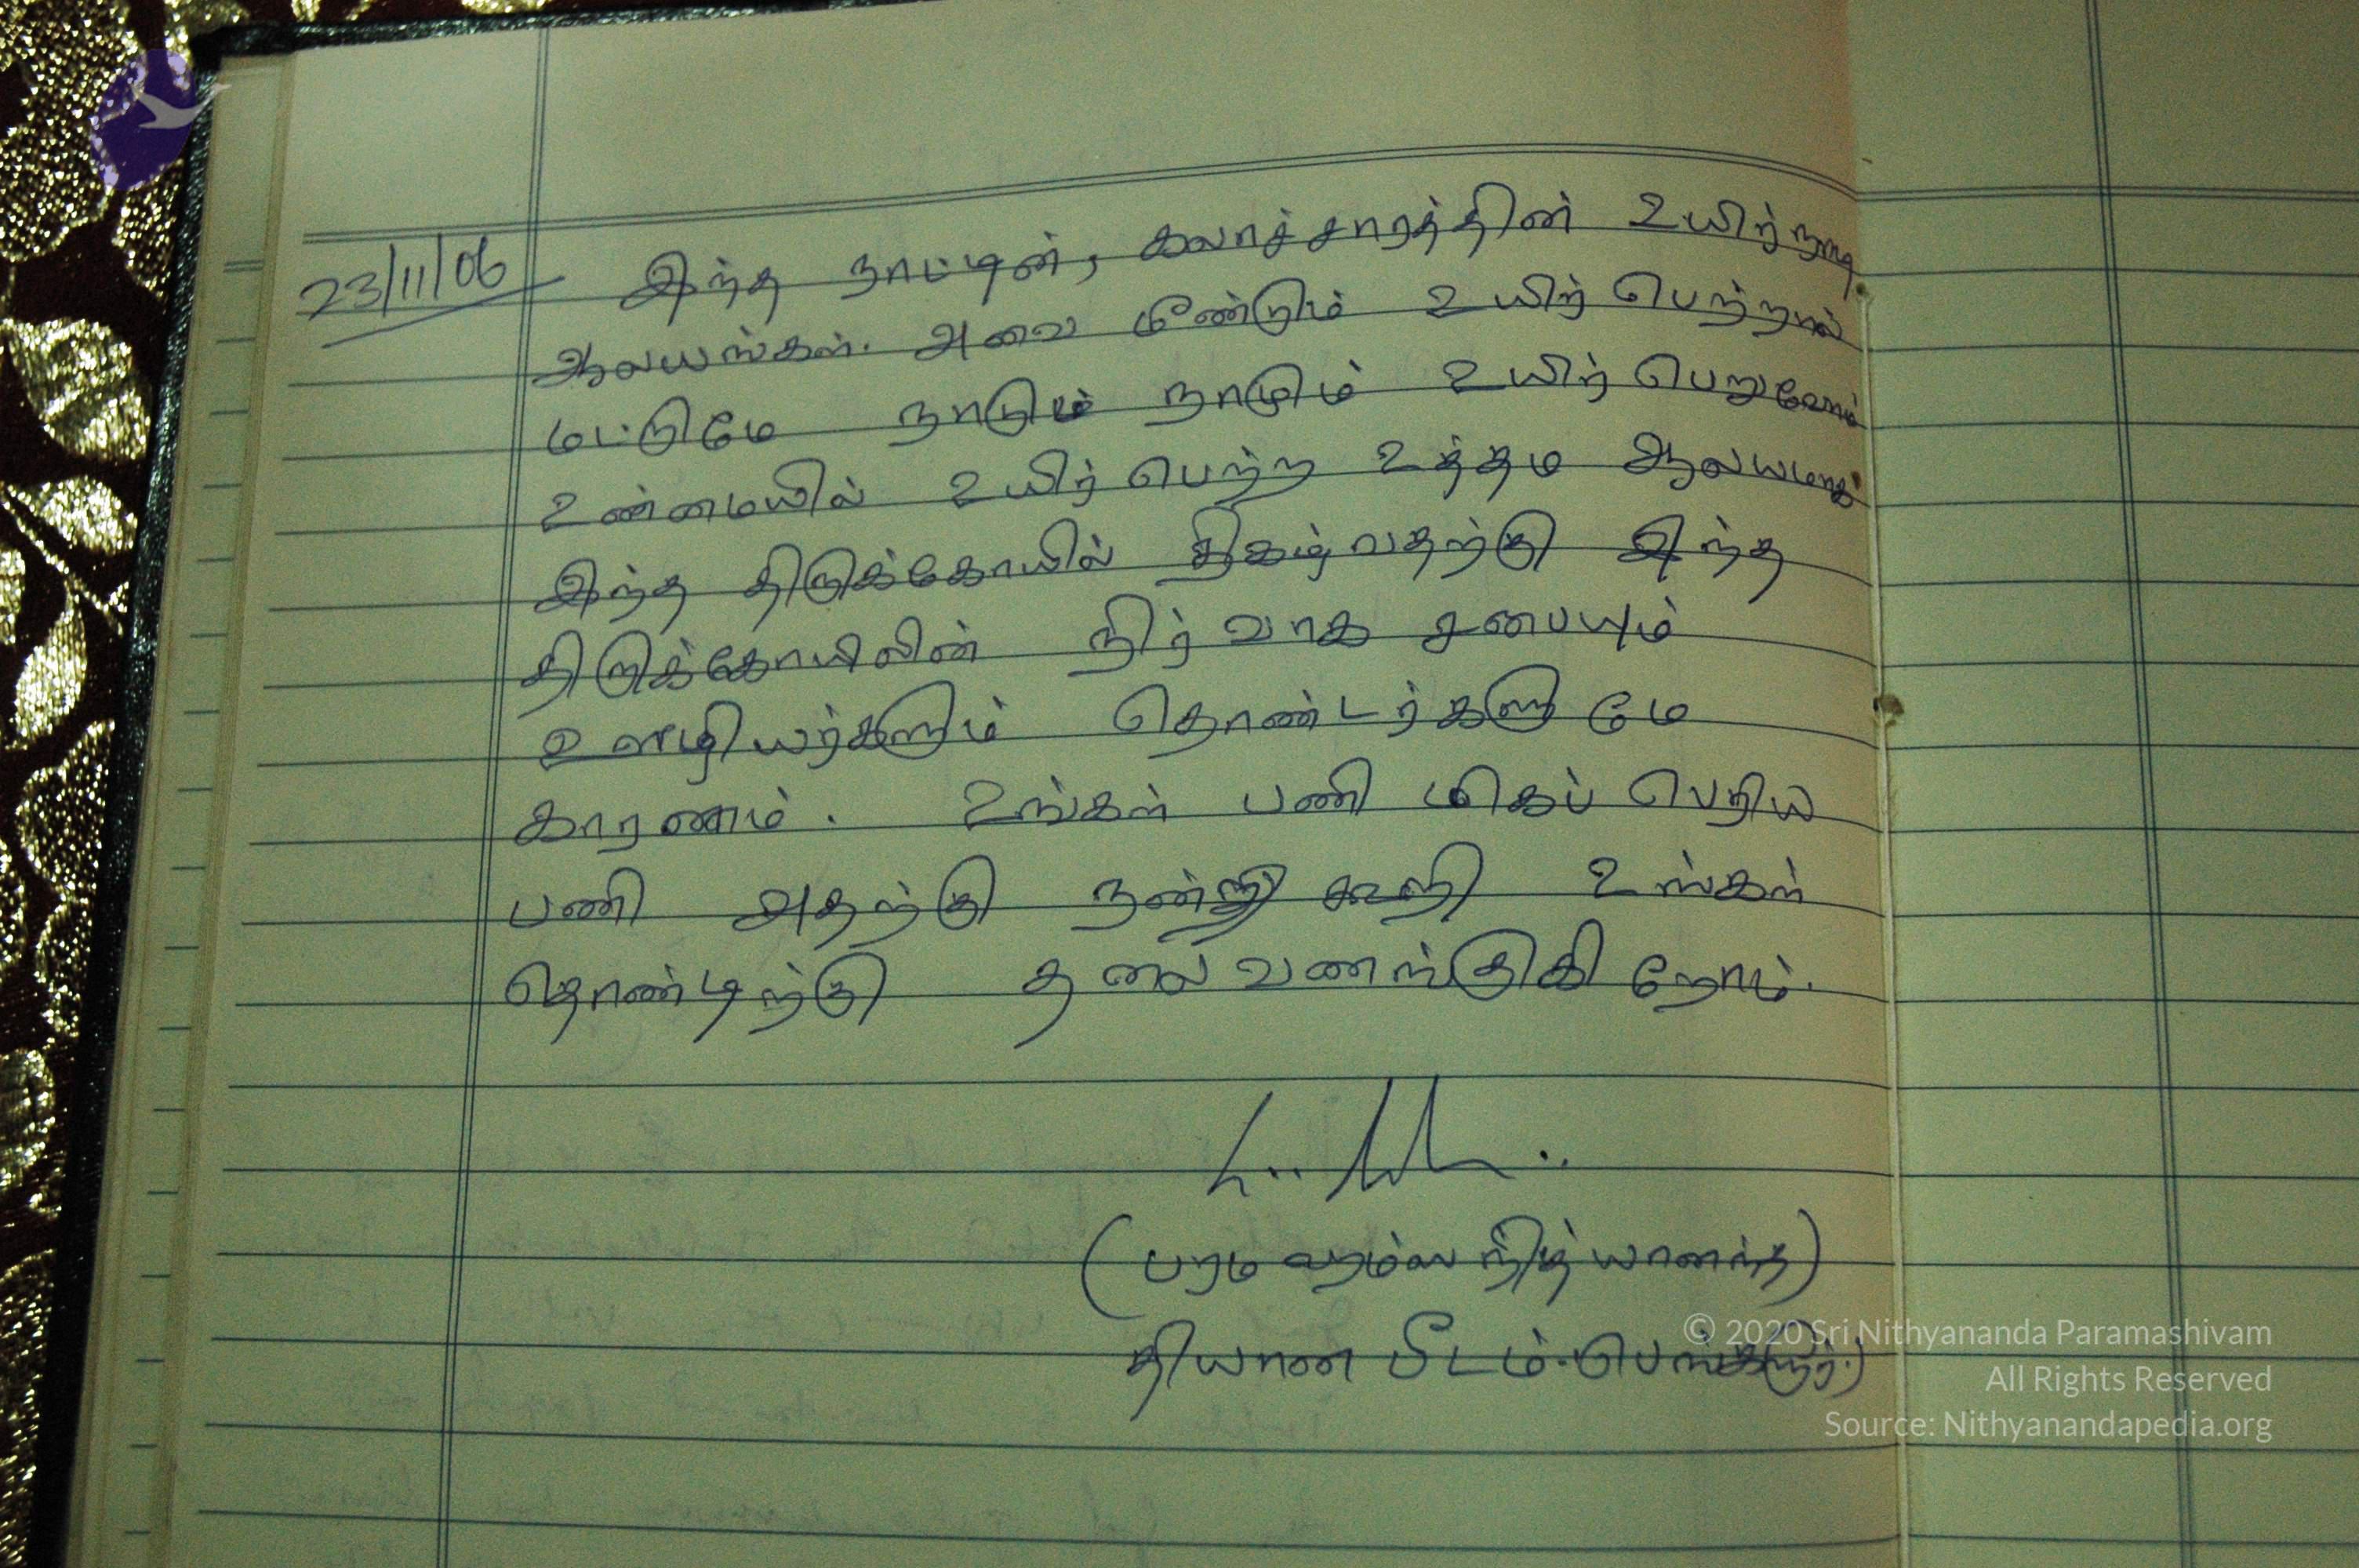 23/11/06 இந்த நாட்டின், கலாச்சாரத்தின் உயிர்நாடி
ஆலயங்கள். அவை மீண்டும் உயிர் பெற்றால்
மட்டுமே நாடும் நாமும் உயிர் பெறுவோம்
உண்மையில் உயிர் பெற்ற உத்தம ஆலயமாக
இந்த திருக்கோயில் திகழ்வதற்கு இந்த
திருக்கோயிலின் நிர்வாக சபையும்
ஊழியர்களும் தொண்டர்களுமே
காரணம். உங்கள் பணி மிகப் பெரிய
பணி அதற்கு நன்றி கூறி உங்கள்
தொண்டிற்கு தலைவணங்குகிறோம்.
(பரமஹம்ஸ நித்யானந்த)
தியான பீடம். பெங்களூர்.)
© 2020 Sri Nithyananda Paramashivam
All Rights Reserved
Source: Nithyanandapedia.org